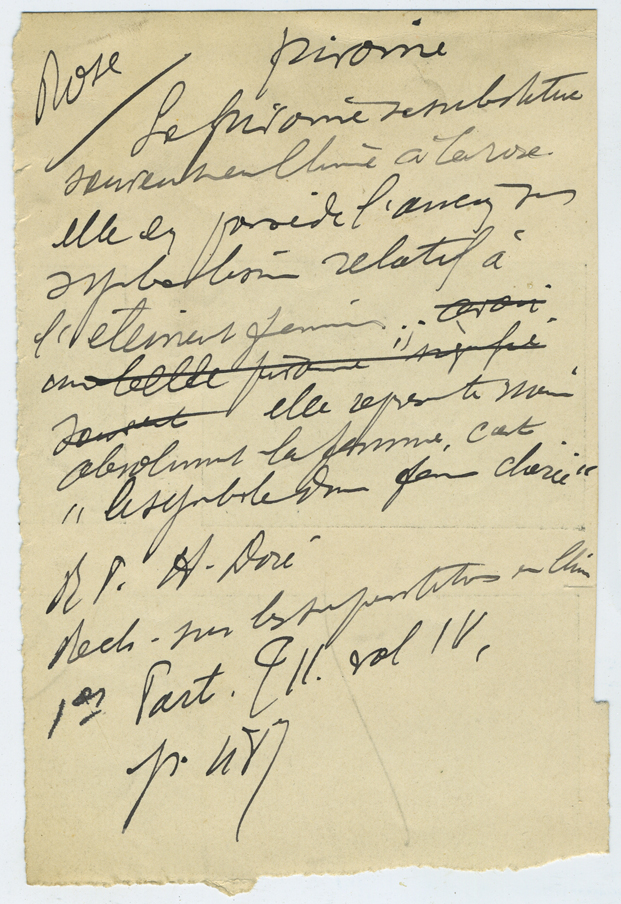 Rose pivoine
La pivoine se substitue
souvent en Chine à la rose
elle en possède l'ancien
symbolisme relatif à
l'élément féminin. avoir
une belle pivoine " signifie
souvent elle représente moins
absolument la femme, c'est
" le symbole d'une femme chérie "
R P. H. Doré
Rech. sur les superstitions en Chine
1er Part. T II. vol IV,
p. 487